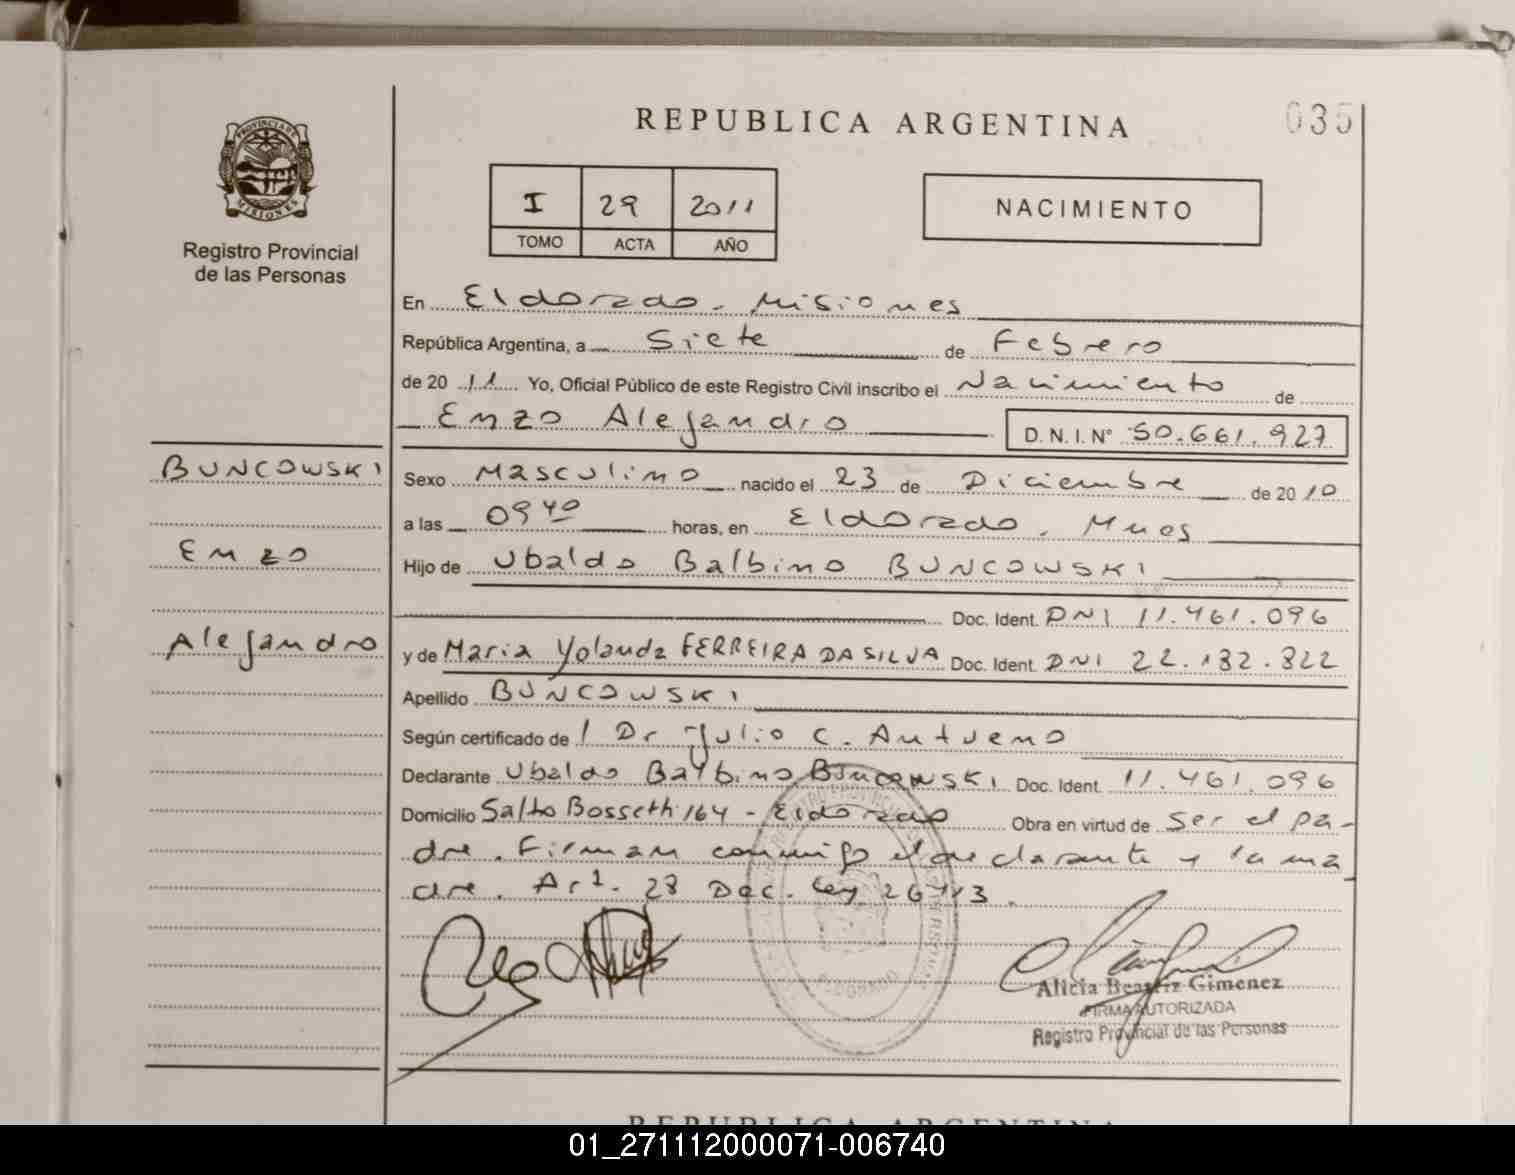 REPUBLICA ARGENTINA
035
PROVINCIA DE
MISIONES
Registro Provincial
de las Personas
I 29 2011
TOMO ACTA AÑO
NACIMIENTO
En Eldorado - Misiones
República Argentina, a Siete de Febrero
de 20 11 Yo, Oficial Público de este Registro Civil inscribo el Nacimiento de
Enzo Alejandro D.N.I. Nº 50.661.927
BUNCOWSKI
Enzo
Alejandro
Sexo Masculino nacido el 23 de Diciembre de 2010
a las 09 40 horas, en Eldorado, Mnes
Hijo de Ubaldo Balbino BUNCOWSKI
Doc. Ident. DNI 11.461.096
y de Maria Yolanda FERREIRA DA SILVA Doc. Ident. DNI 22.132.822
Apellido BUNCOWSKI
Según certificado de / Dr Julio C. Antueno
Declarante Ubaldo Balbino BUNCOWSKI Doc. Ident. 11.461.096
Domicilio Salto Bossetti 164 - Eldorado Obra en virtud de Ser el pa-
dre. Firman conmigo el declarante y la ma
dre. Art. 28 Dec. Ley 26413.
ELDORADO
Alicia Beatriz Gimenez
FIRMA AUTORIZADA
Registro Provincial de las Personas
REPUBLICA ARGENTINA
01_271112000071-006740